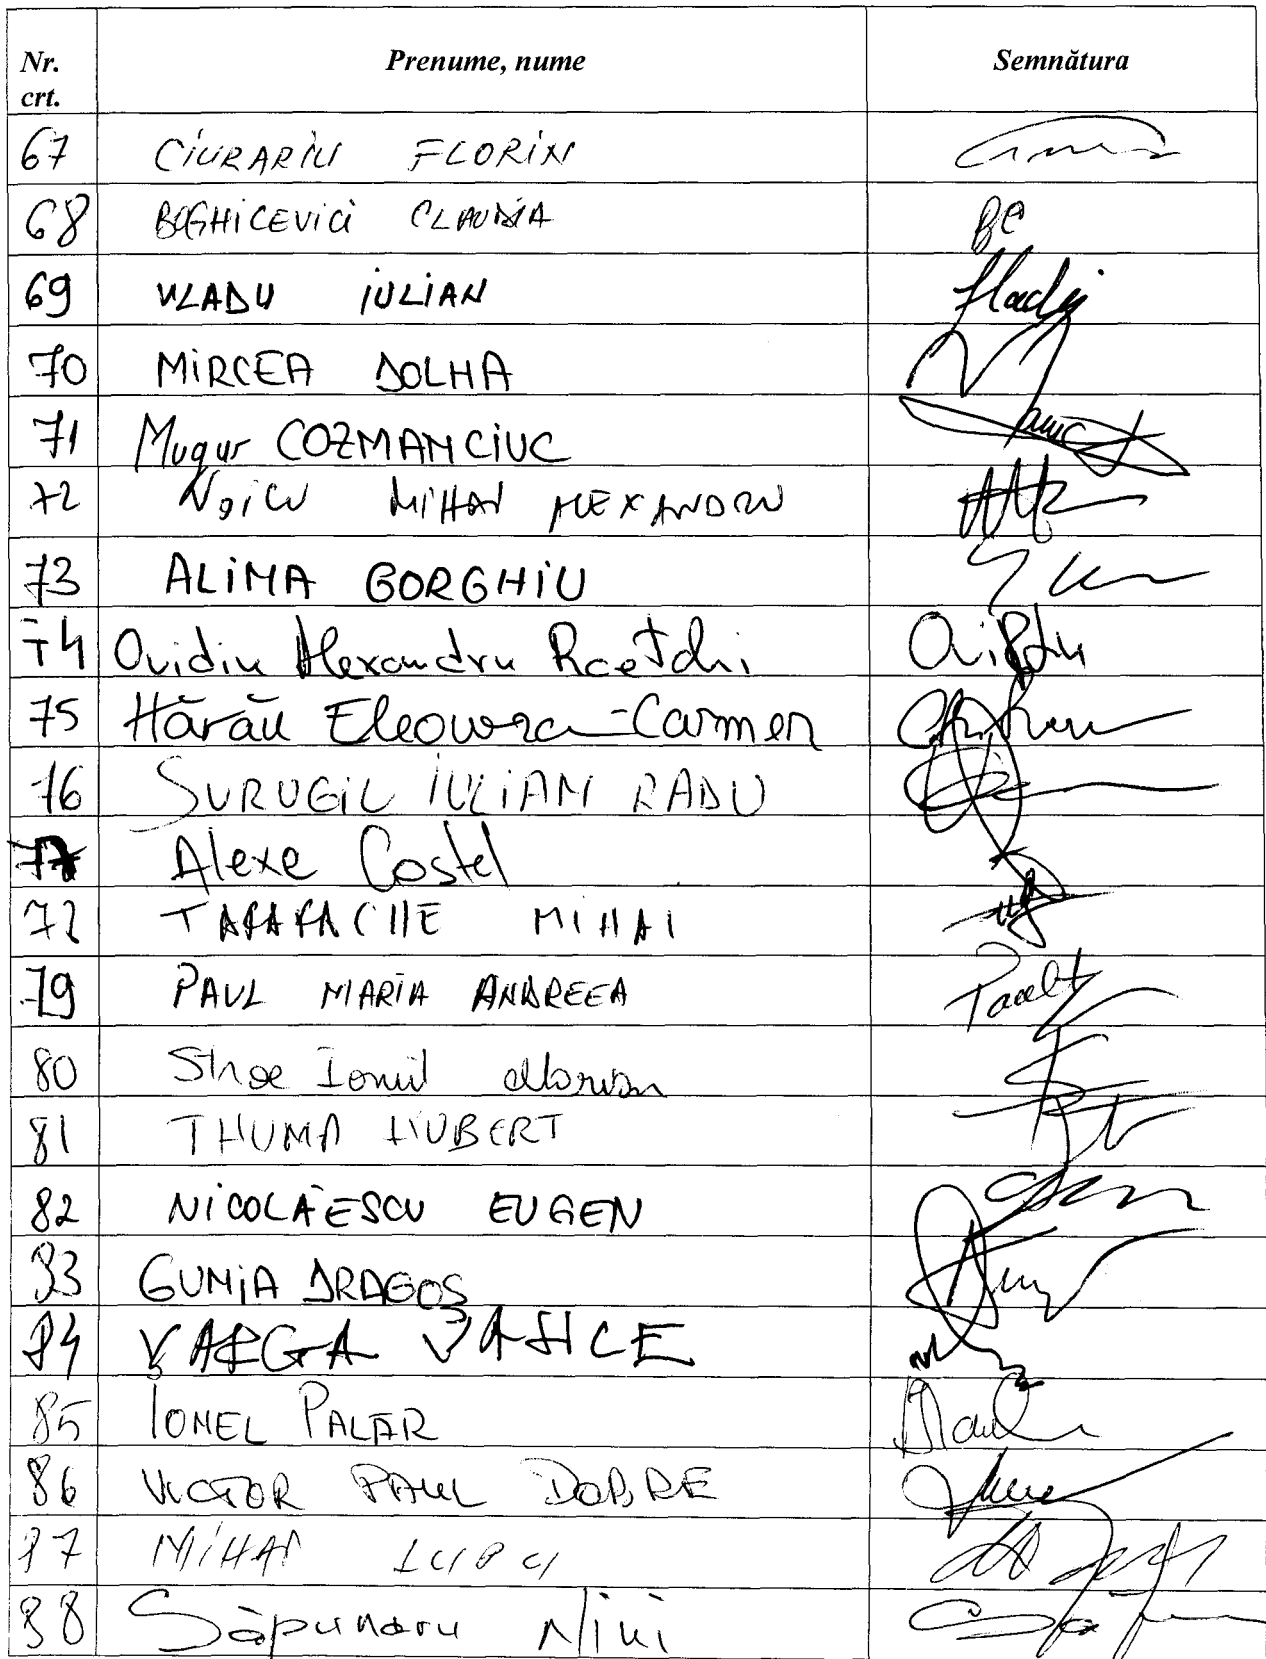 Nr. crt. Prenume, nume Semnătura
67 CIURARIU FLORIN
68 BOGHICEVICI CLAUDIA BC
69 VLADU IULIAN Vladu
70 MIRCEA DOLHA
71 Mugur COZMANCIUC
72 NOICU MIHAI ALEXANDRU
73 ALINA GORGHIU
74 Ovidiu Alexandru Raetchi
75 Hărău Eleonora-Carmen
76 SURUGIU IULIAN RADU
77 Alexe Costel
72 TARARACHE MIHAI
79 PAUL MARIA ANDREEA
80 Stroe Ionuț Marian
81 THUMA HUBERT
82 NICOLĂESCU EUGEN
83 GUNIA DRAGOS
84 VARGA VASILE
85 IONEL PALĂR
86 VICTOR PAUL DOBRE
87 MIHAI LUPU
88 Săpunaru Nini